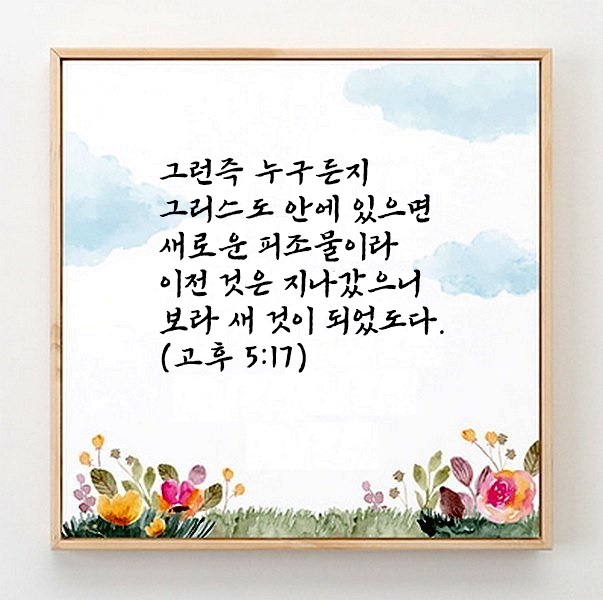 그런즉 누구든지
그리스도 안에 있으면
새로운 피조물이라
이전 것은 지나갔으니
보라 새 것이 되었도다.
(고후 5:17)